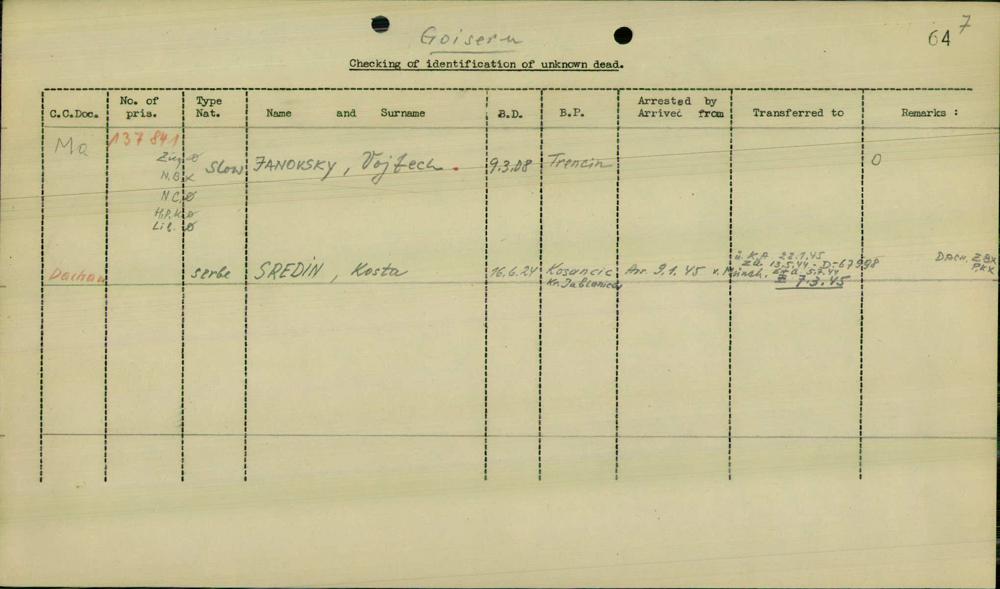 Goisern
64 7
Checking of identification of unknown dead.
C.C.Doc. No. of pris. Type Nat. Name and Surname B.D. B.P. Arrested by Arrived from Transferred to Remarks :
Ma 137841
Slow JANOVSKY, Vojtech. 9.3.08 Trencin 0
N.B. x
N.C. ø
H.P.K. ø
Lit. ø
Dachau serbe SREDIN, Kosta 16.6.24 Kosancic Arr 9.1.45 v.
Kr. Jablanica
22.1.45
13.5.44 - D-67998
5.7.44
7.3.45
Dach. ZBX
PKX